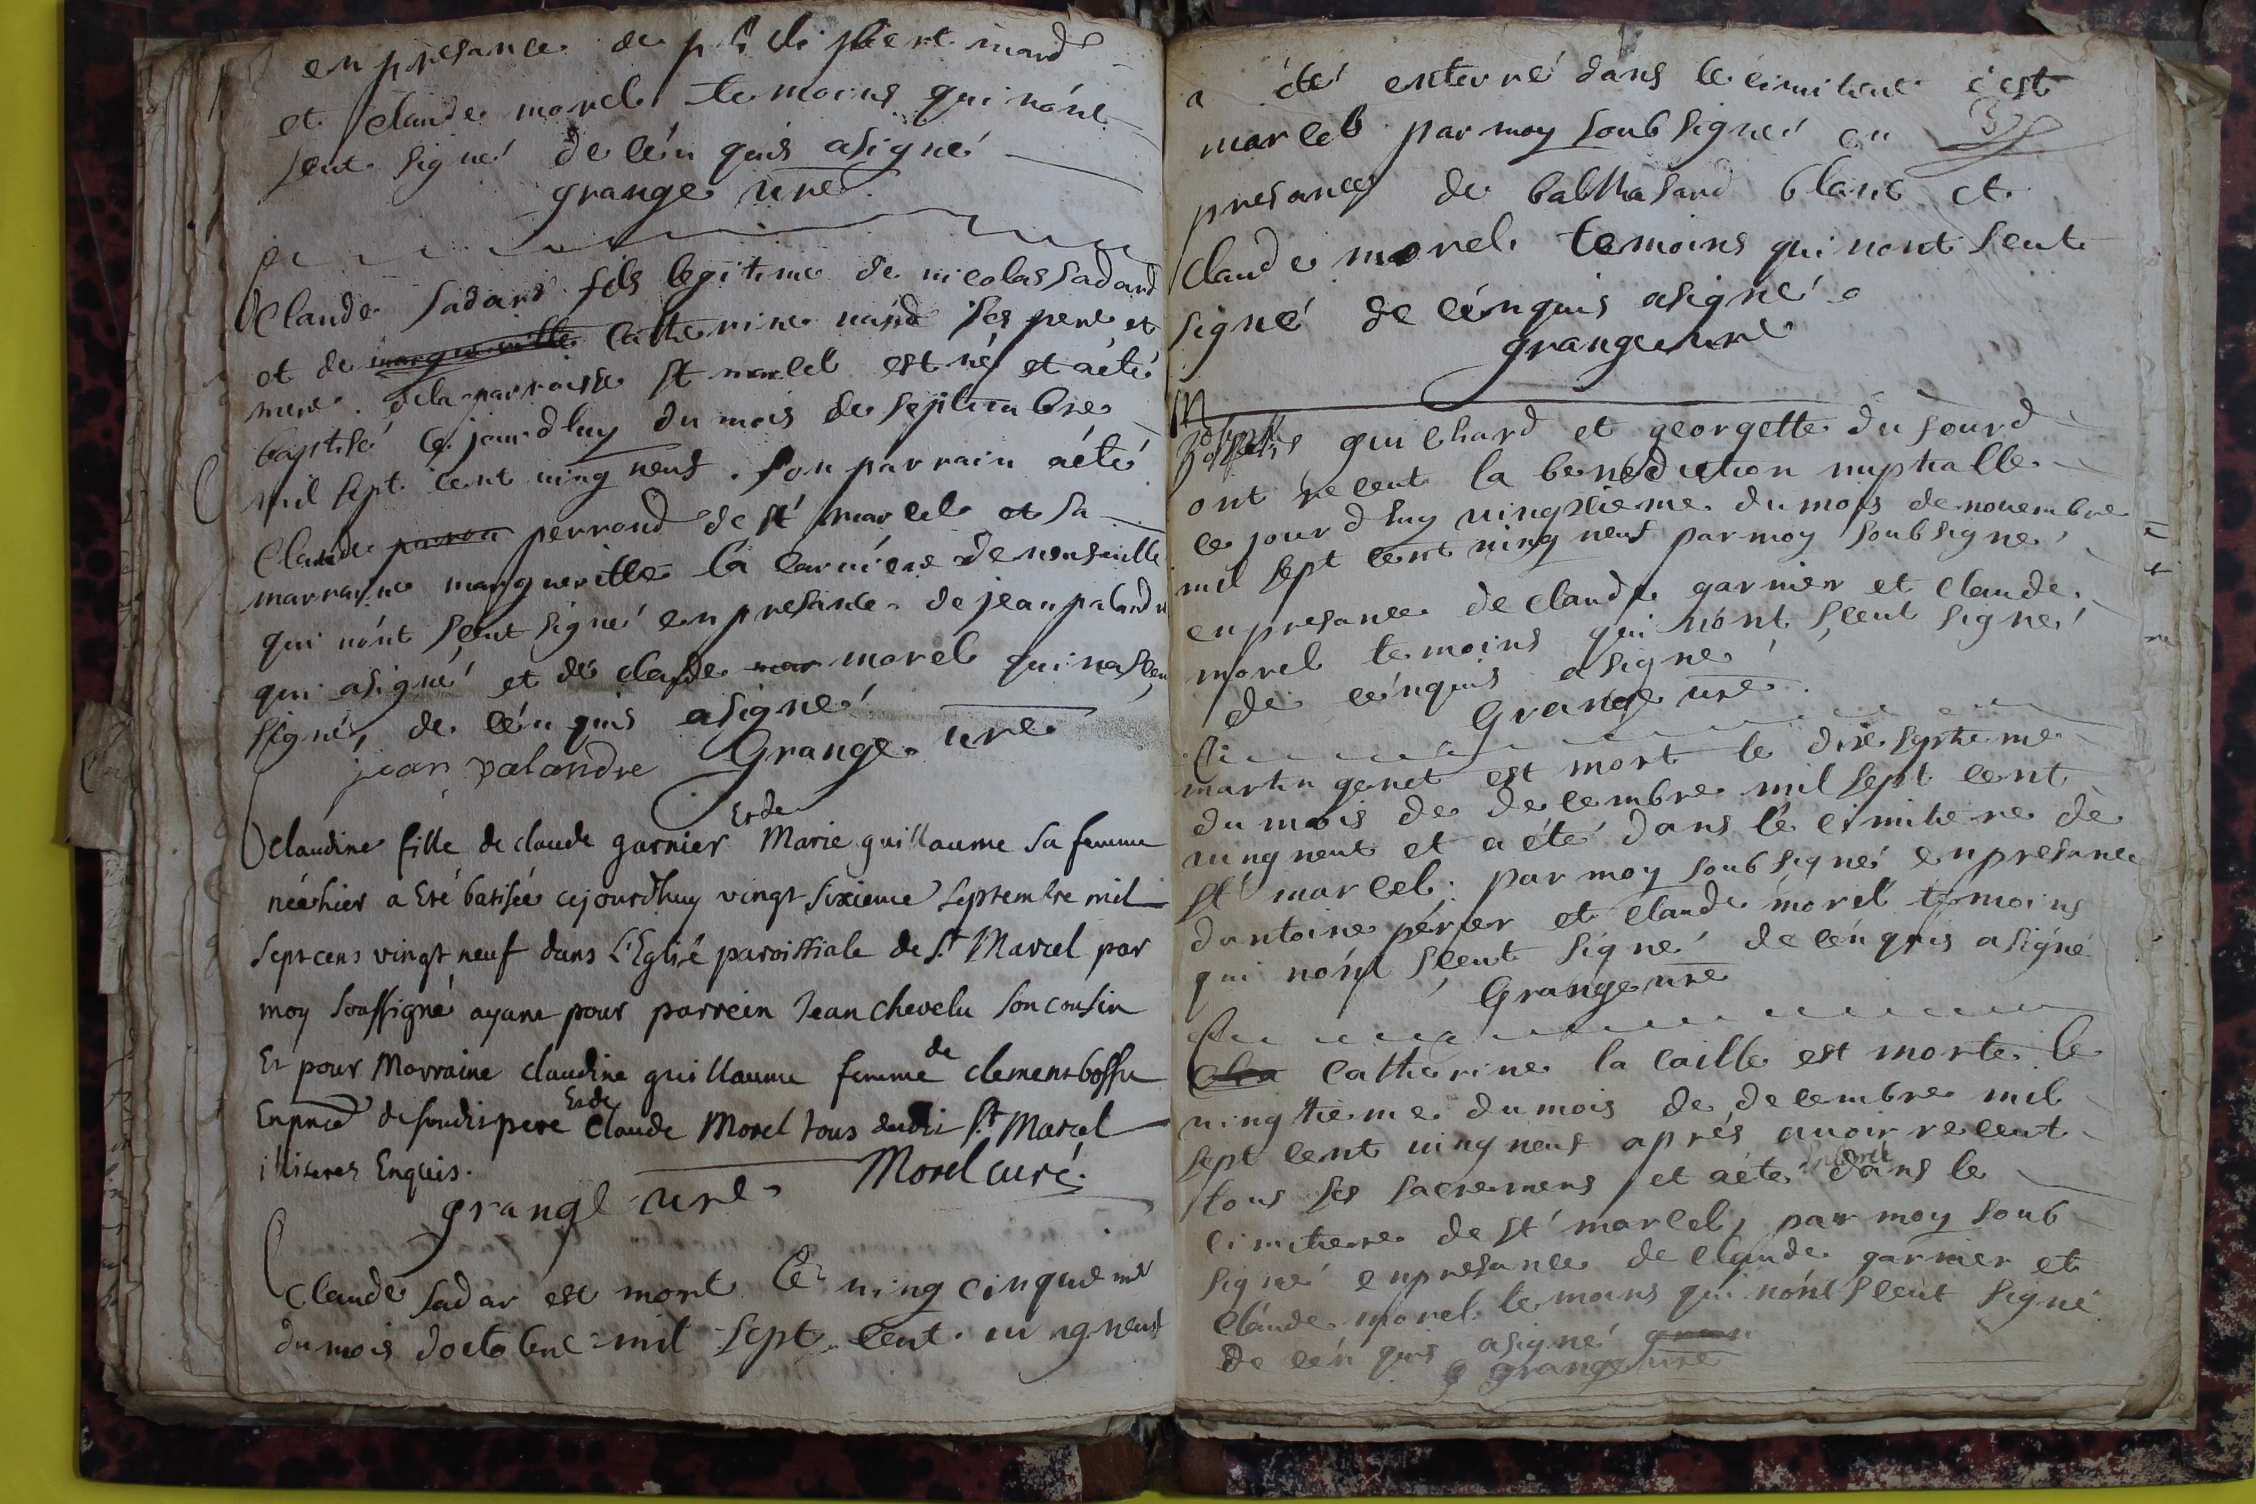 en presance de
et claude morel temoins qui nónt
sceut signé de léń quis asigné
grange uré
Claude sadard fils legitime de nicolas sadard
et de catherine ses pere et
mere. dela parroisse st marcel est né et aété
baptisé le jourdhuy du mois de septembre
mil sept cent ving neuf. son parrain aété
Claude perrond de st marcel et sa
marraine margueritte la
qui nónt sceut signé en presance de jean palandre
qui asigné et de claude morel qui na sceu
signé, de léń quis asigné
jean palandre Grange uré
Et de
claudine fille de claude garnier Marie guillaume sa femme
née hier a Eté batisée cejourdhuy vingt sixieme septembre mil
sept cens vingt neuf dans L'Eglise paroissiale de St Marcel par
moy soussigné ayant pour parrein Jean chevelu son cousin
Et pour Marraine claudine guillaume femme de clement bossu
En pnce desondit pere Et de Claude Morel tous dudit St Marcel
illiteres Enquis.
grange uré Morel curé.
Claude sadar est mort le ving cinquieme
du mois doctobre mil sept cent ving neuf
a été enterré dans le cimitiere
marcel par moy soub signé en
presance de balthasard blanc et
Claude morel temoins qui nont sceut
signé de léńquis asigné
grange uré
guichard et georgette du sourd
ont receut la benediction nuptialle
le jourdhuy vingtieme du mois de novembre
mil sept cent ving neuf par moy soubsigné
en presance de claude garnier et claude
morel temoins qui nónt sceut signé
de léńquis asigné
Grange uré
martin genet est mort le diseptieme
du mois de decembre mil sept cent
ving neuf et a été dans le cimitiere de
st marcel. par moy soub signé en presance
dantoine perier et claude morel temoins
qui nónt sceut signé de léńquis asigné
Grange uré
Catherine la caille est morte le
vingtieme du mois de decembre mil
sept cent ving neuf aprés avoir receut
tous ses sacremens et aété enterré dans le
cimitiere de st marcel, par moy soub
signé en presance de claude garnier et
Claude morel temoins qui nónt sceut signé
de léń quis asigné
grange uré